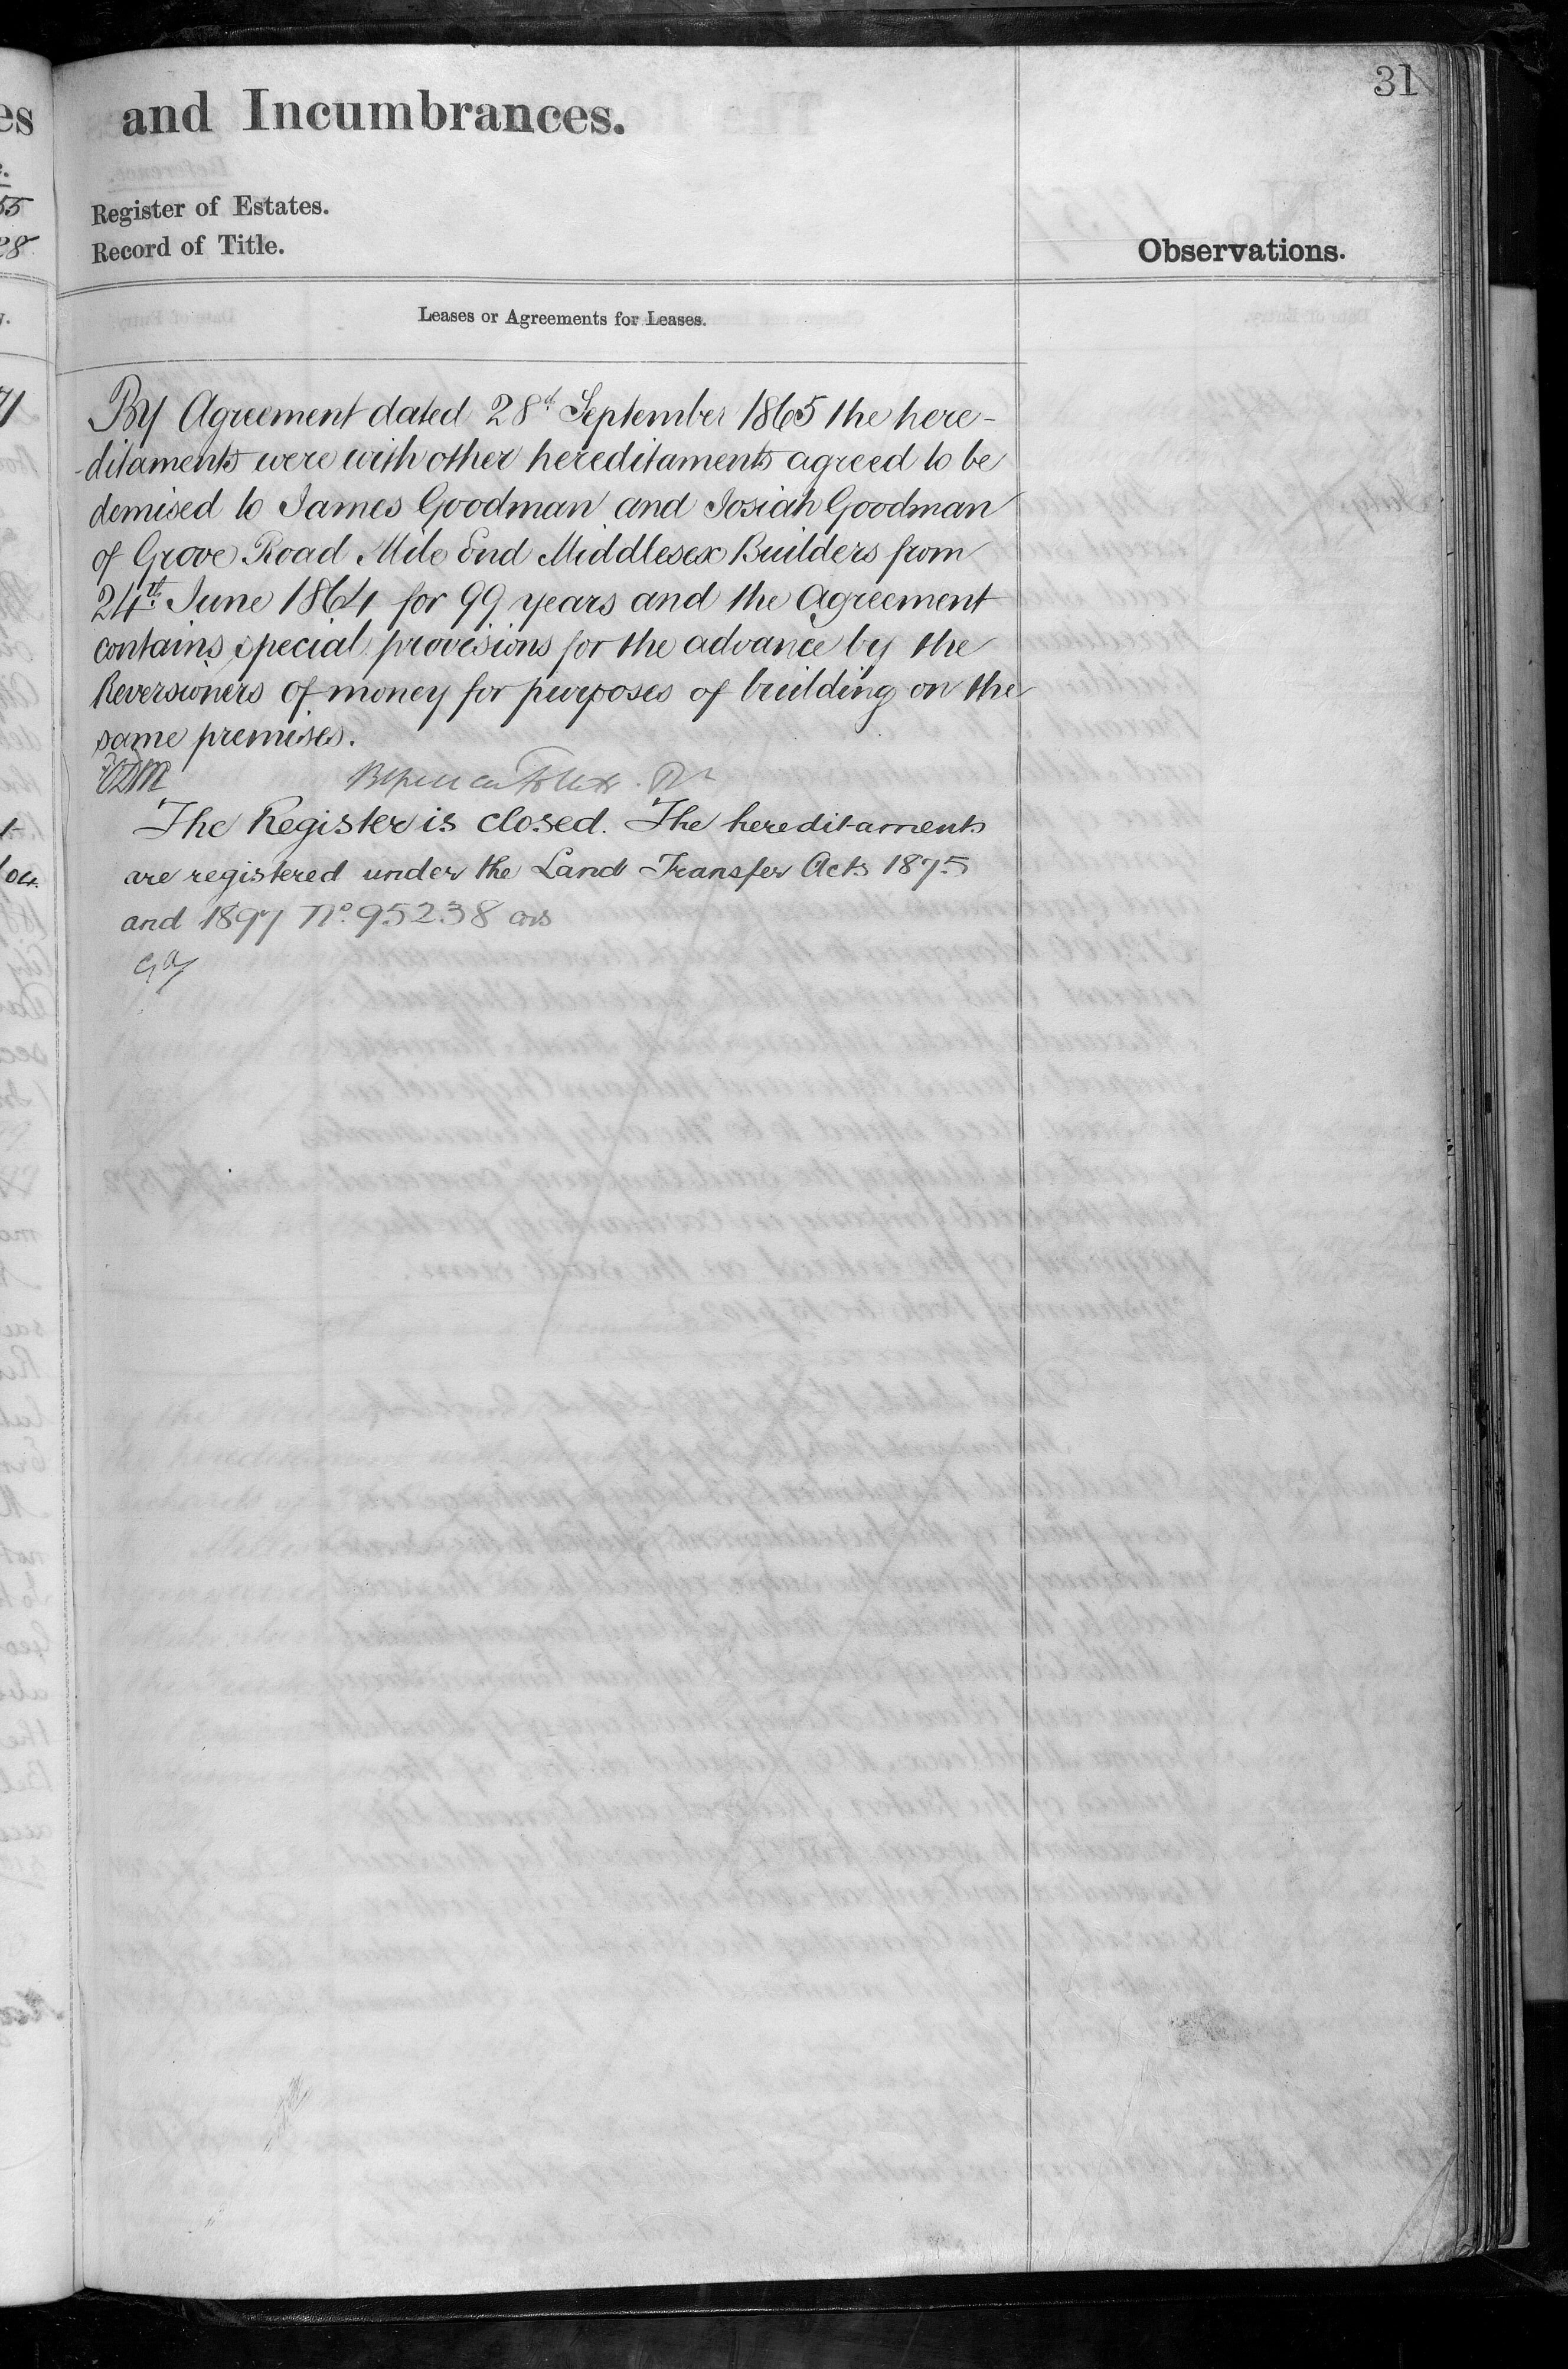 31
and Incumbrances.
Register of Estates.
Record of Title.
Observations.
Leases or Agreements for Leases.
By Agreement dated 28th September 1865 the here-
-ditaments were with other hereditaments agreed to be
demised to James Goodman and Josiah Goodman
of Grove Road Mile End Middlesex Builders from
24th June 1864 for 99 years and the Agreement
contains special provisions for the advance by the
Reversioners of money for purposes of building on the
same premises.
The Register is closed. The hereditaments
are registered under the Land Transfer Acts 1875
and 1897 No. 95238